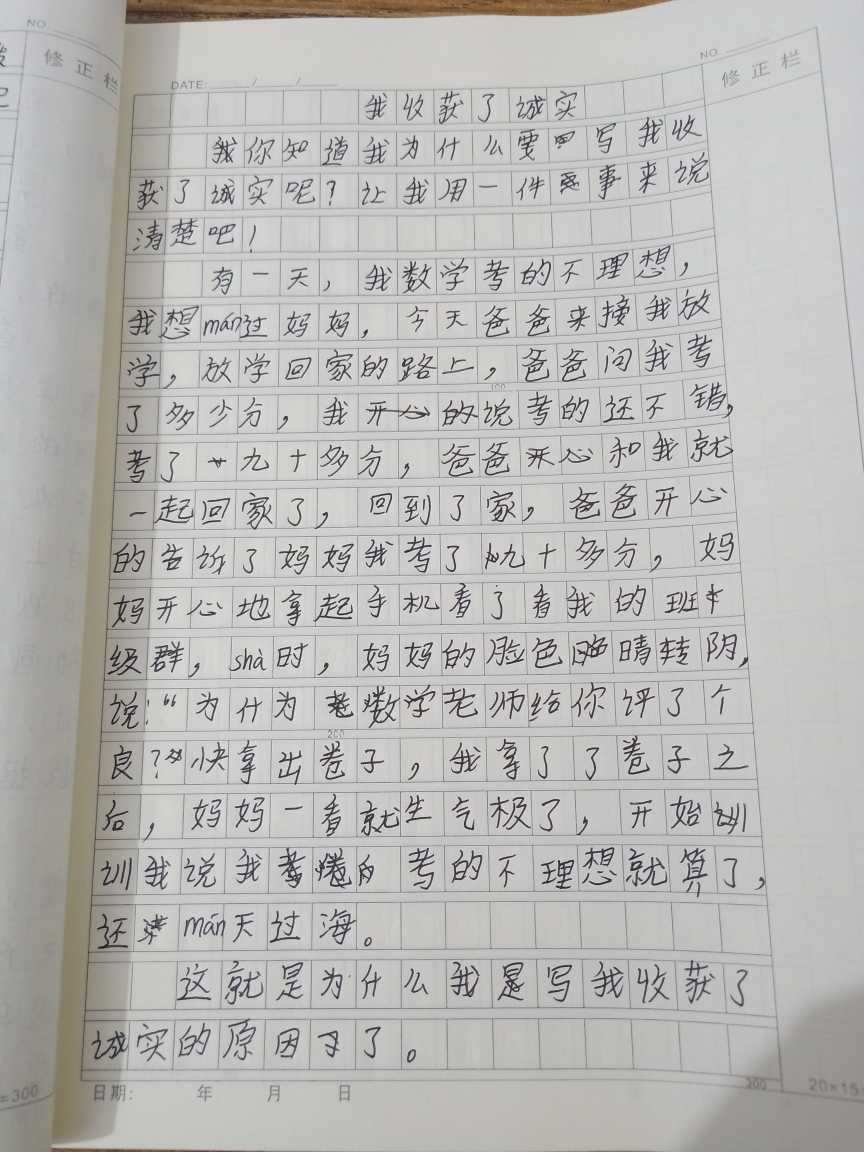 NO
修正栏
DATE: / /
NO
修正栏
我收获了诚实
你知道我为什么要写我收
获了诚实呢？让我用一件事来说
清楚吧！
有一天，我数学考的不理想，
我想mán过妈妈，今天爸爸来接我放
学，放学回家的路上，爸爸问我考
100
了多少分，我开心的说考的还不错，
考了九十多分，爸爸开心和我就
一起回家了，回到了家，爸爸开心
的告诉了妈妈我考了九十多分，妈
妈开心地拿起手机看了看我的班
级群，shà时，妈妈的脸色晴转阴，
说：“为什为数学老师给你评了个
200
良？”快拿出卷子，我拿了了卷子之
后，妈妈一看就生气极了，开始训
训我说我考的不理想就算了，
还mán天过海。
这就是为什么我是写我收获了
诚实的原因了。
300
日期： 年 月 日
20×15
=300